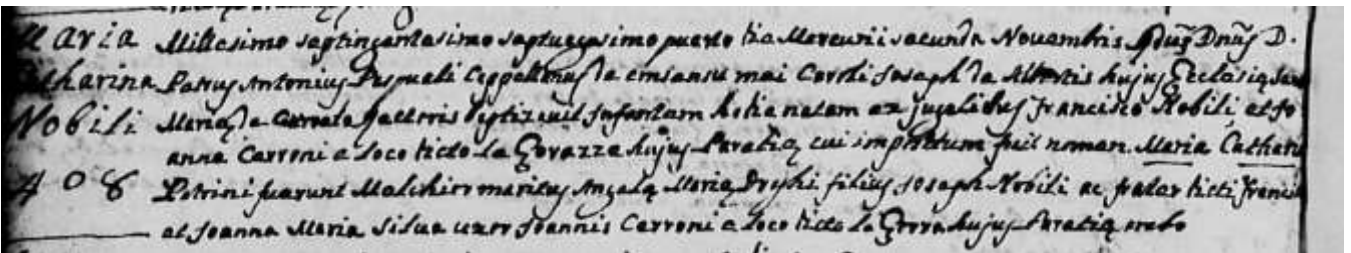 Maria Millesimo septingentesimo septuagesimo quarto die Mercurii secunda Novembris Adus Dnus D.
Catharina Petrus Antonius Pasquali Cappellanus de consensu mei Caroli Joseph de Albertis hujus Ecclesię
Nobili Marię de Rectoris baptizavit Infantem hodie natam ex jugalibus Francisco Nobili, et Jo
anna Carroni e loco dicto la Govazza hujus Parœcię cui impositum fuit nomen Maria Cathari
408 Patrini fuerunt Melchior maritus Angelę Marię filius Joseph Nobili ac frater dicti Franci
et Joanna Maria Silva uxor Joannis Carroni e loco dicto la hujus Parœcię